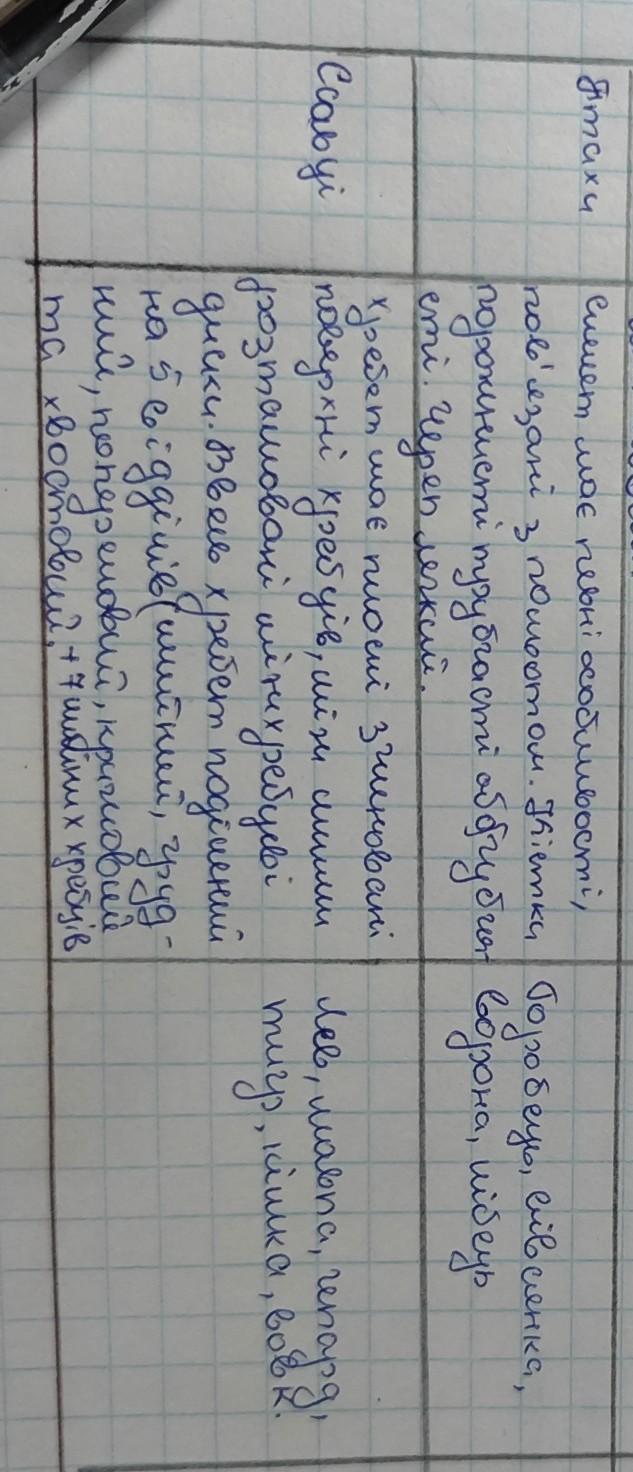 Птахи
Скелет має певні особливості,
пов'язані з польотом. Кістки
порожнисті трубчасті обдзубия
сті. Череп легкий.
Горобець, синсинка,
ворона, півець
Ссавці
хребет має плоскі зчленовані
поверхні хребців, між якими
розташовані міжхребцеві
диски. Ввесь хребет поділений
на 5 відділів (шийний, груд-
ний, поперековий, крижовий
та хвостовий, +7 шийних хребців
Лев, мавпа, гепард,
тигр, кішка, вовк.